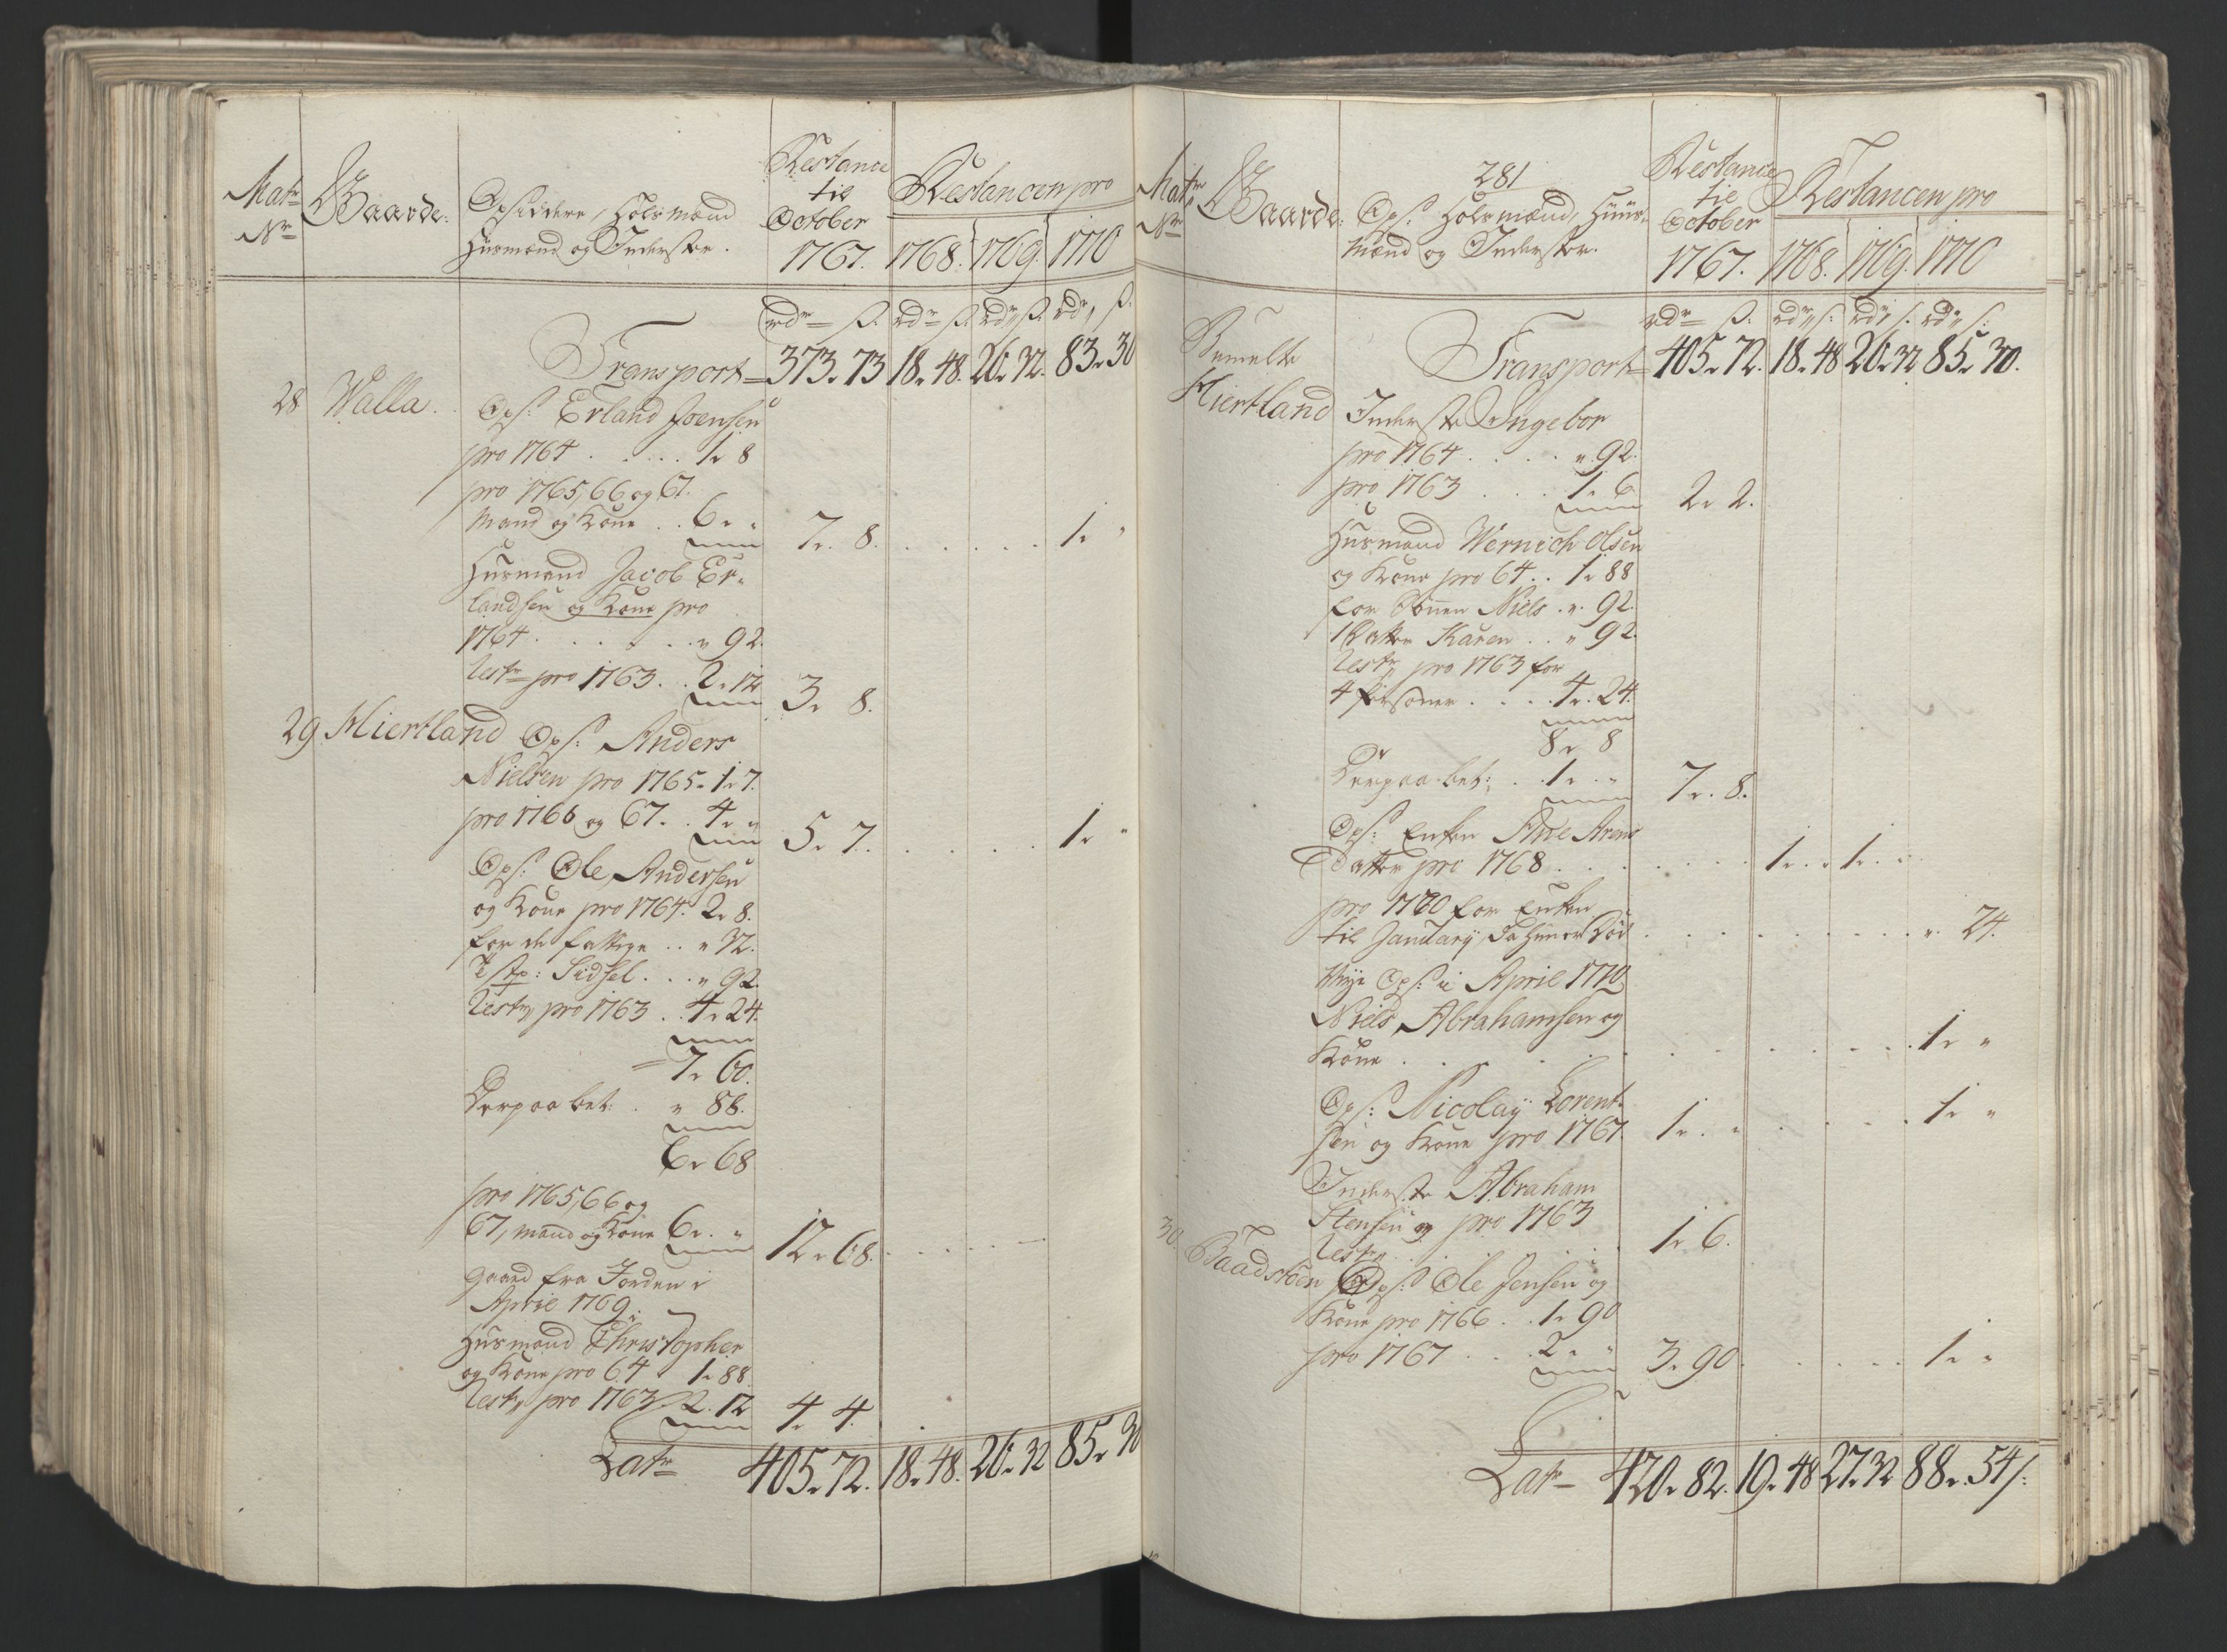 Matr
Nr
Gaarde.
Opsiddere, Holsmænd
Huusmænd og Inderster.
Restance
til
October
1767.
Restancen pro
1768. 1769. 1770
rdr ß. rdr ß. rdr ß. rdr ß.
Transport 373. 73 18. 48. 26. 32. 83. 30
28 Walla. Ops: Erland Joensen
pro 1764 . . . . . 1. 8
pro 1765, 66 og 67.
Mand og Kone . . 6. " 7. 8. . . . . . 1. "
Huusmand Jacob Er-
landsen og Kone pro
1764 . . . . . . " 92.
Restr pro 1763 . . 2. 12 3. 8.
29 Hiertland Ops: Anders
Nielsen pro 1765. 1. 7.
pro 1766 og 67. . 4. " 5. 7. . . . . . 1. "
Ops: Ole Andersen
og Kone pro 1764. 2. 8.
for de fattige . . " 32.
Sidsel . . . " 92.
Restr pro 1763 . . 4. 24.
7. 60.
Derpaa bet: . " 88.
6. 68
pro 1765, 66 og
67, mand og Kone 6. " 12. 68. . . . . .
gaard fra Jorden i
April 1769.
Huusmand Christopher
og Kone pro 64 1. 88.
Restr pro 1763 2. 12 4. 4.
Latr 405. 72. 18. 48. 26. 32 85. 30
281
Matr
Nr
Gaarde.
Ops: Holsmænd, Huus-
mænd og Inderster.
Restance
til
October
1767.
Restancen pro
1768. 1769. 1770
rdr ß. rdr ß. rdr ß. rdr ß.
Bemelte Transport 405. 72. 18. 48 26. 32 85. 30.
Hiertland Inderste Ingebor
pro 1764 . . . . " 92.
pro 1763 . . . 1. 6 2. 2.
Huusmand Wernich Olsen
og Kone pro 64 . . 1. 88
for Sønnen Niels . " 92.
1 Datter Karen . . " 92.
Restr pro 1763 for
4 Personer . . . . 4. 24.
8. 8
Derpaa bet: . . 1. " 7. 8.
Ops: Enken Ane Arens
Datter pro 1768 . . . . . . . 1. " 1. "
pro 1770 for Enken
til January, da hun er Død . . . . . . . . . " 24.
Nye Ops: i April 1770
Niels Abrahamsen og
Kone . . . . . . . . . . 1. "
Ops: Nicolay Lorent-
sen og Kone pro 1767 1. " . . . . 1. "
Inderste Abraham
Stensen og pro 1763
Restr . . . . . 1. 6.
30 Baadstoen Ops: Ole Jensen og
Kone pro 1766 . . 1. 90
pro 1767 . . . 2. " 3. 90. . . . . . 1. "
Latr 420. 82. 19. 48 27. 32 88. 54/: